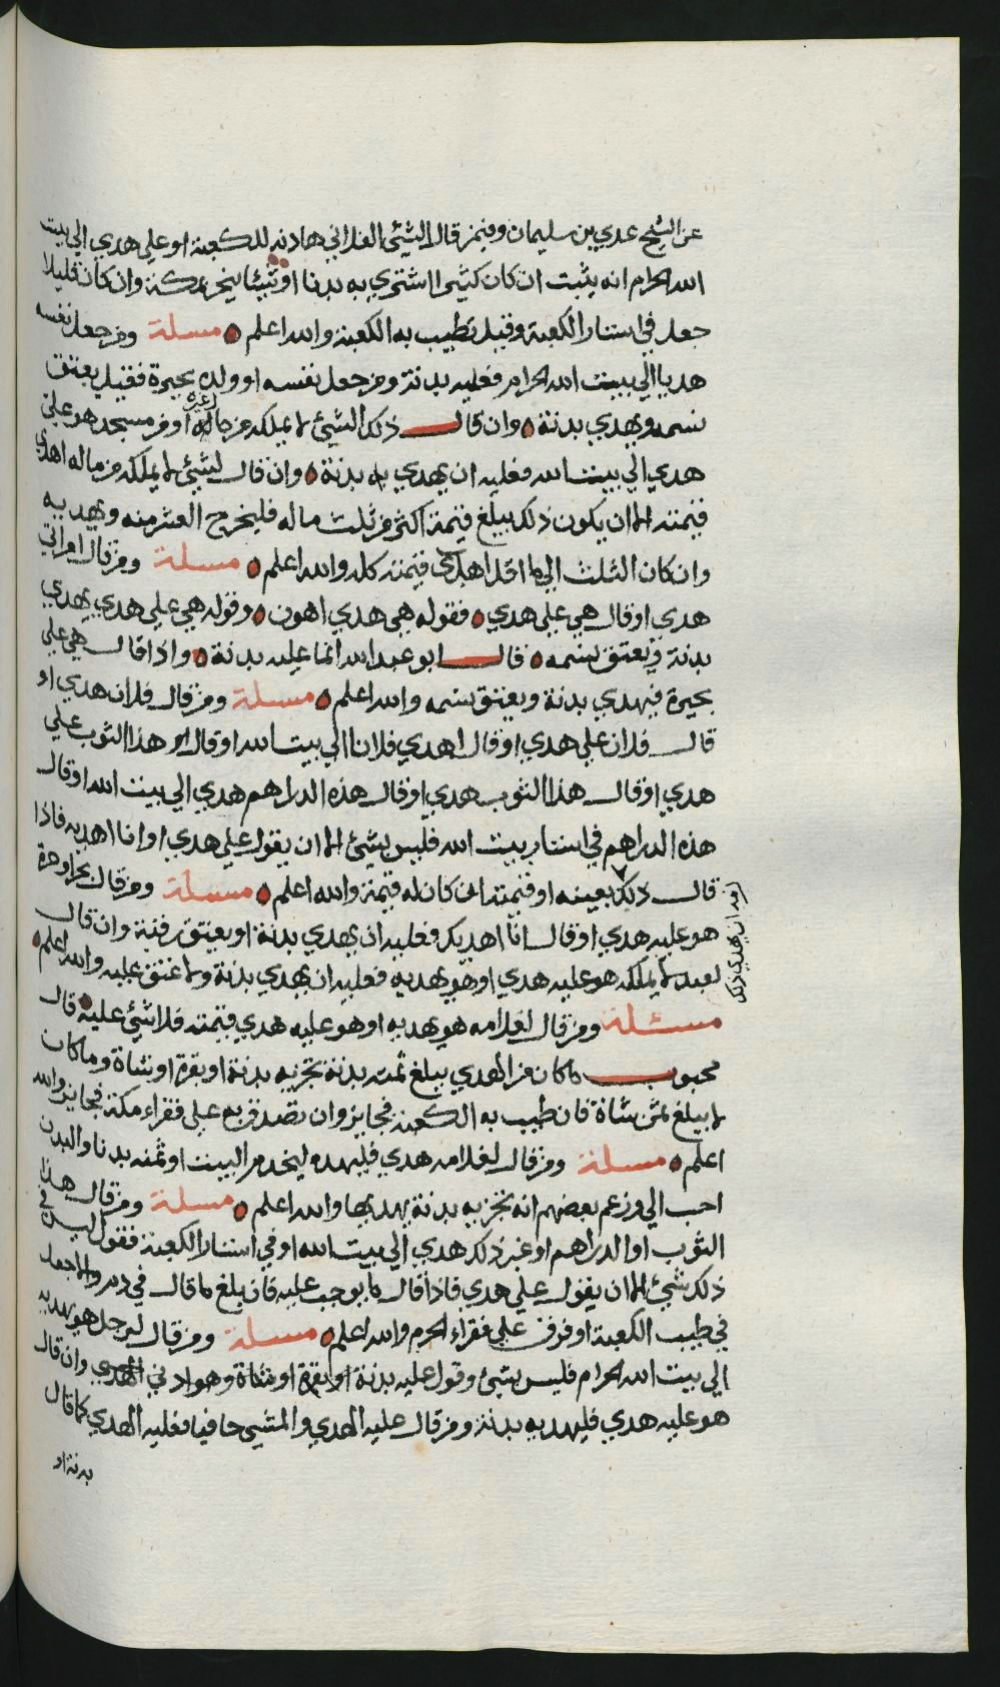 عن الشيخ عدي بن سليمان وفيمن قال الشئ الفلاني هادنه للكعبة او علي هدي الي بيت
الله الحرام انه يثبت ان كان كثيرا اشترى به بدنا او شيئا ينحر بمكة وان كان قليلا
جعل في استار الكعبة وقيل تطيب به الكعبة والله اعلم مسلة ومن جعل نفسه
هديا الي بيت الله الحرام فعليه بدنة ومن جعل نفسه او ولده بحيرة فقيل يعتق
نسمه ويهدي بدنة وان قال ذلك الشئ لا يملكه من ماله او غيره او من مسجد هو علي
هدي الي بيت الله فعليه ان يهدي به بدنة وان قال لشئ لا يملكه من ماله اهدي
قيمته الا ان يكون ذلك يبلغ قيمة اكثر من ثلث ماله فليخرج العشر منه ويهديه
وان كان الثلث الي ما اقل اهدى قيمته كله والله اعلم مسلة ومن قال امراتي
هدي او قال هي علي هدي فقوله هي هدي اهون وقوله هي علي هدي يهدي
بدنة ويعتق نسمه قال ابو عبد الله انما عليه بدنة واذا قال هي علي
بحيرة فيهدي بدنة ويعتق نسمه والله اعلم مسلة ومن قال فلان هدي او
قال فلان علي هدي او قال اهدي فلانا الي بيت الله او قال هذا الثوب علي
هدي او قال هذا الثوب هدي او قال هذه الدراهم هدي الي بيت الله او قال
هذه الدراهم في استار بيت الله فليس بشئ الا ان يقول علي هدي او انا اهديه فاذا
قال ذلك بعينه او قيمته ان كان له قيمة والله اعلم مسلة ومن قال بحر او حرة
هو عليه هدي او قال انا اهديك فعليه ان يهدي بدنة او يعتق رقبة وان قال
لعبد لا يملكه هو عليه هدي او هو يهديه فعليه ان يهدي بدنة ولا عتق عليه والله اعلم
مسئلة ومن قال لغلامه هو يهديه او هو عليه هدي قيمته فلا شئ عليه قال
محبوب ما كان من الهدي يبلغ ثمنه بدنة تجزيه بدنة او بقرة او شاة وما كان
لا يبلغ ثمن شاة فان طيب به الكعبة فجايز وان تصدق به علي فقراء مكة فجايز والله
اعلم مسلة ومن قال لغلامه هدي فليهده ليخدم البيت او ثمنه بدنا والبدن
احب الي وزعم بعضهم انه تجزيه بدنة يهديها والله اعلم مسلة ومن قال هذا
الثوب او الدراهم او غير ذلك هدي الي بيت الله او في استار الكعبة فقول ليس في
ذلك شئ الا ان يقول علي هدي فاذا قال ما يوجب عليه فان بلغ ما قال في دم والا جعل
في طيب الكعبة او فرق علي فقراء الحرم والله اعلم مسلة ومن قال لرجل هو يهديه
الي بيت الله الحرام فليس بشئ وقول عليه بدنة او بقرة او شاة وهو ادنى الهدي وان قال
هو عليه هدي فليهد به بدنة ومن قال عليه الهدي والمشي حافيا فعليه الهدي كما قال
بدنة او